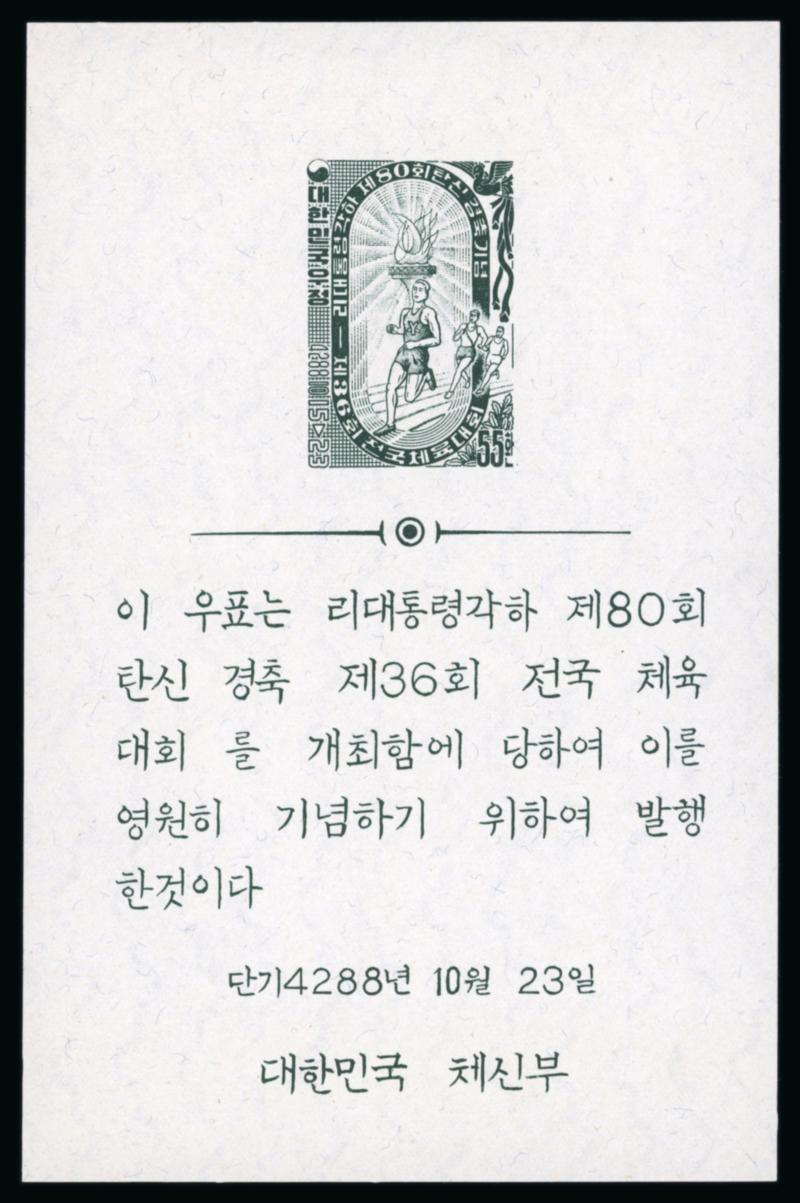 대한민국우정
4288.10.15▷23
리대통령각하 제80회 탄신 경축 기념
제36회 전국체육대회
55환
이 우표는 리대통령각하 제80회
탄신 경축 제36회 전국 체육
대회 를 개최함에 당하여 이를
영원히 기념하기 위하여 발행
한것이다
단기4288년 10월 23일
대한민국 체신부